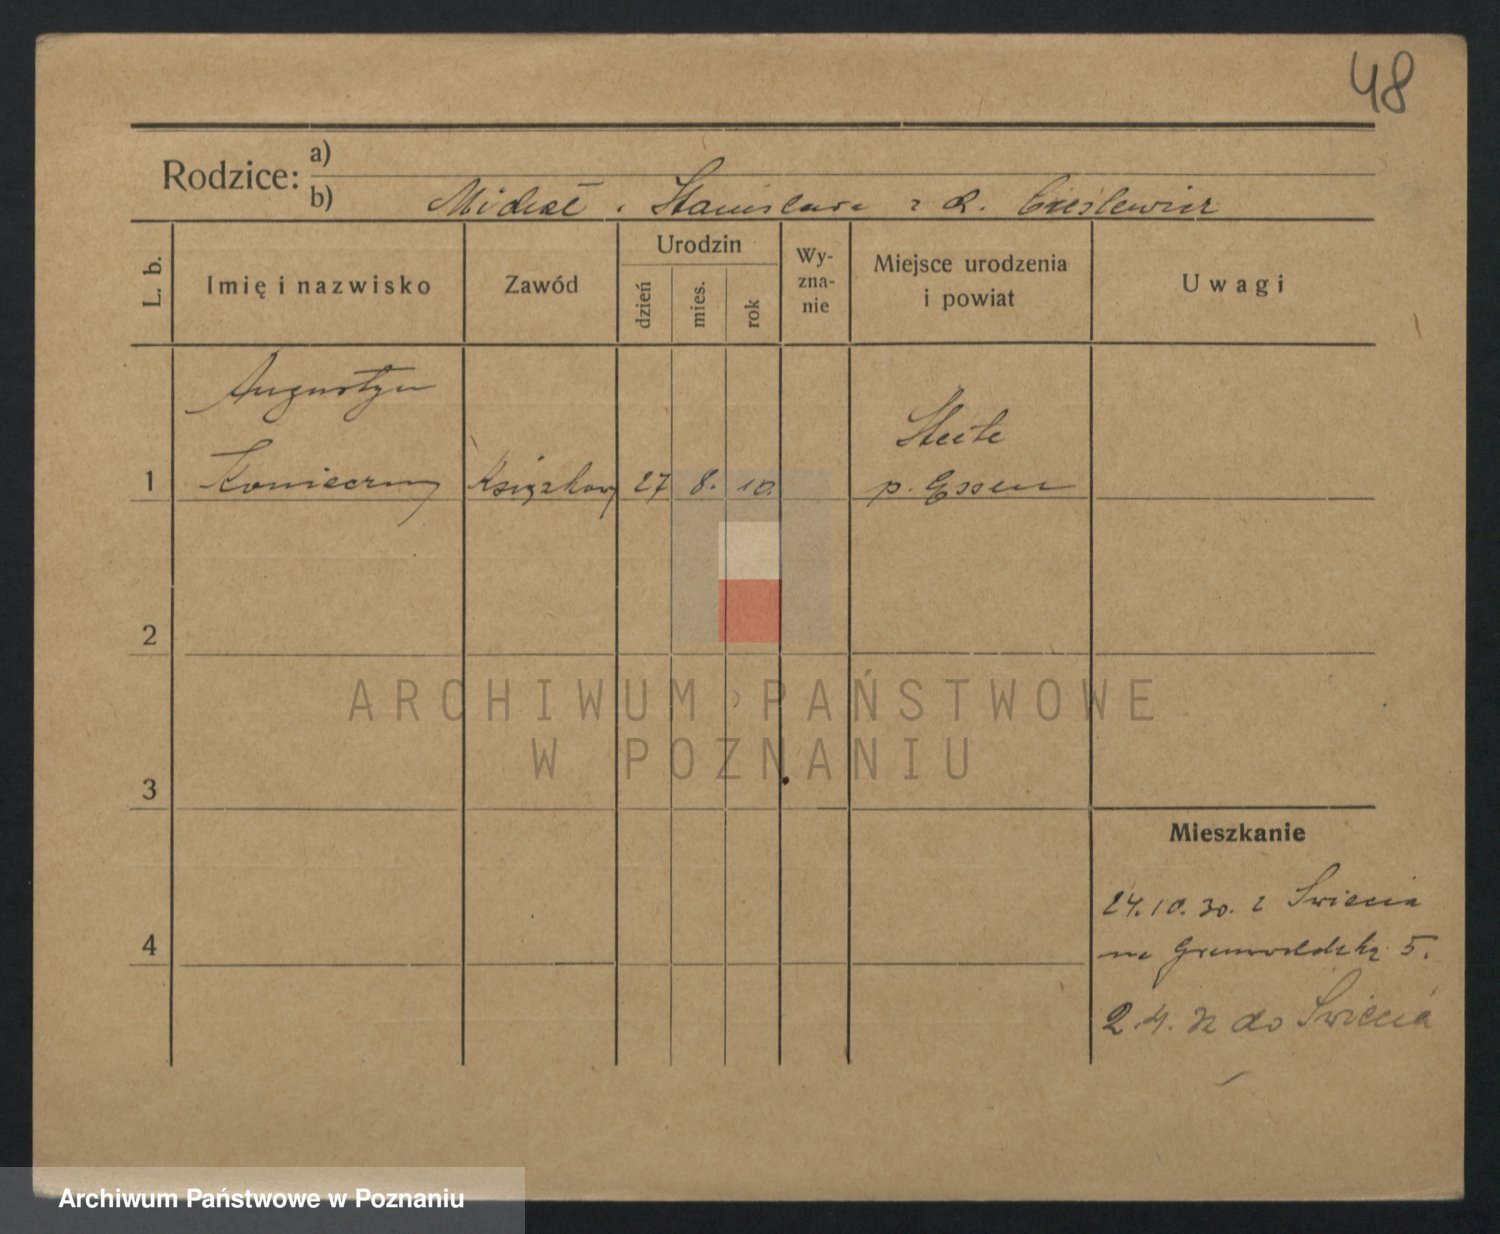 48
Rodzice:
a)
b) Michał i Stanisława z d. Cieślewicz
L. b.
Imię i nazwisko
Zawód
Urodzin
dzień
mies.
rok
Wy-
zna-
nie
Miejsce urodzenia
i powiat
Uwagi
Augustyn
Stule
1 Konieczny Książkowy 27 8. 10. p. Essen
2
3
4
Mieszkanie
24.10.30. z Świecia
na Grunwaldzką 5.
2.4. 32 do Świecia
ARCHIWUM PAŃSTWOWE
W POZNANIU
Archiwum Państwowe w Poznaniu